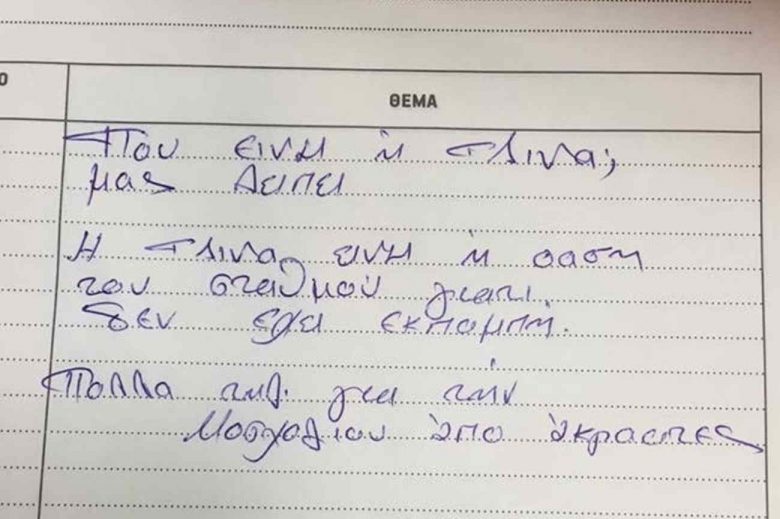 Ο
ΘΕΜΑ
Που ειναι η Τζινα;
μας λειπει
Η Τζινα ειναι η οαση
του σταθμού γιατι
δεν εχει εκπομπή.
Πολλα τηλ. για την
Μοσχολιου απο ακροατες